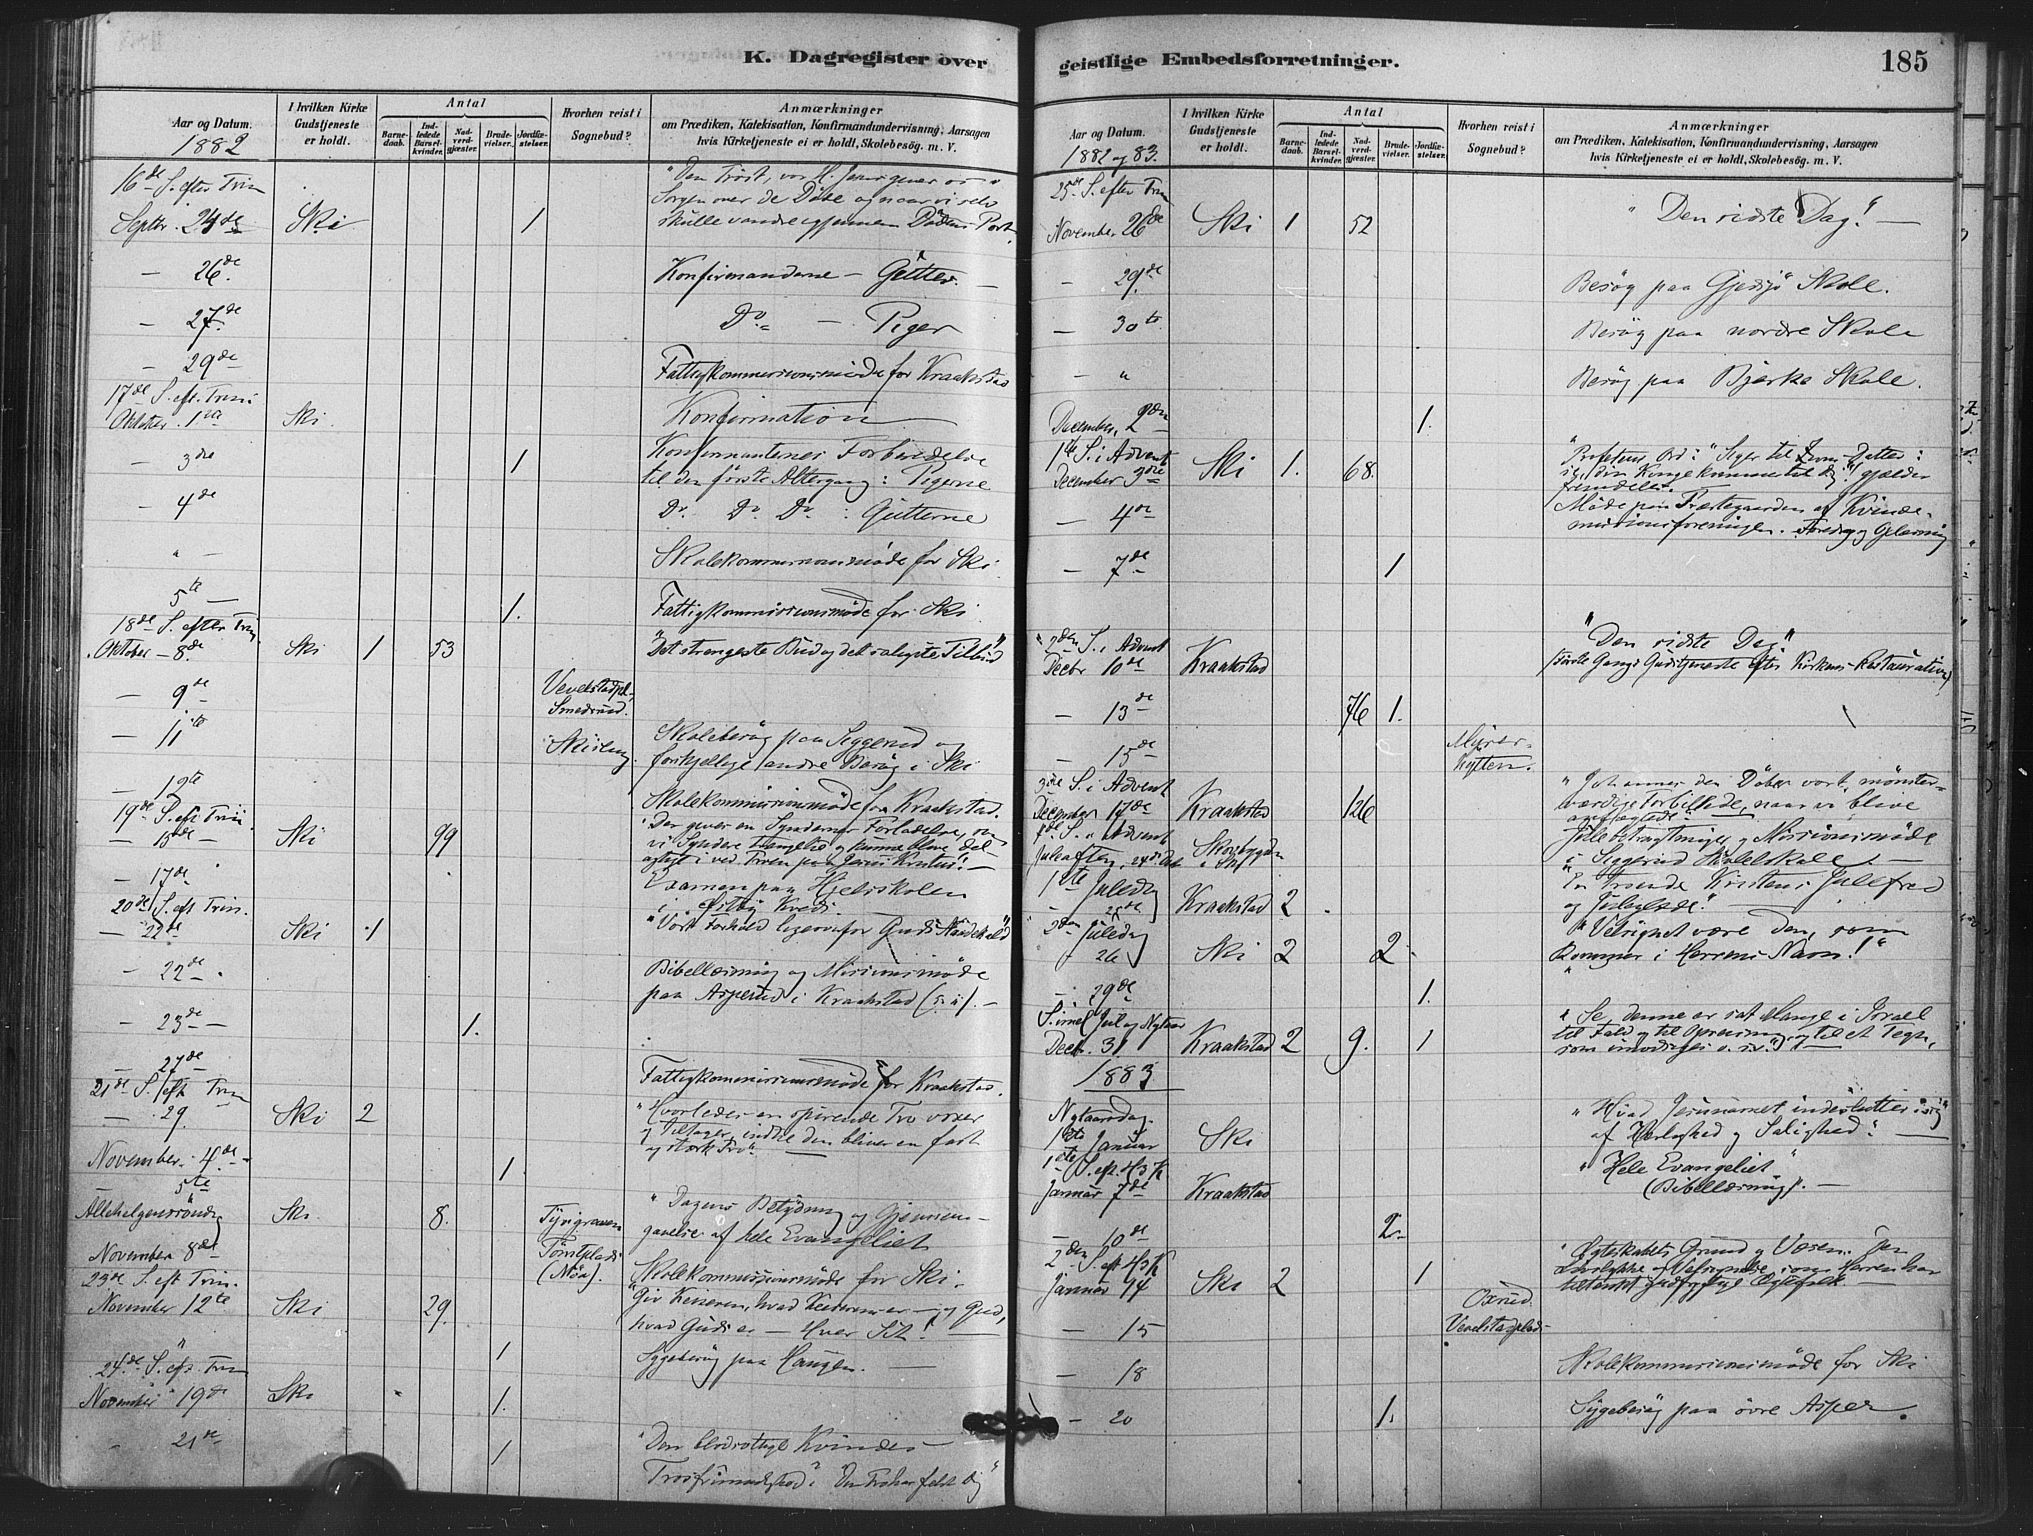 K. Dagregister over
Aar og Datum.
1882
I hvilken Kirke
Gudstjeneste
er holdt.
Antal
Barne-
daab.
Ind-
ledede
Barsel-
kvinder.
Nad-
verd-
gjæster.
Brude-
vielser.
Jordfæ-
stelser.
Hvorhen reist i
Sognebud?
Anmærkninger
om Prædiken, Katekisation, Konfirmandundervisning, Aarsagen
hvis Kirketjeneste ei er holdt, Skolebesøg. m. V.
16de S. efter Trin
"Den Trøst, vor H. Jesus giver os i
Sorgen over de Døde og naar vi selv
Septbr. 24de Ski 1 skulle vandre igjennem Dødens Port
— 26de Konfirmanderne — Gutter. —
— 27de Do — Piger
— 29de Fattigkommissionsmøde for Kraakstad
17de S. eft. Trin.
Oktober 1ste Ski Konfirmation
— 3die 1 Konfirmanternes Forberedelse
til den første Altergang: Pigerne
— 4de Do Do Do : Gutterne
" — Skolekommissionsmøde for Ski.
5te — 1. Fattigkommissionsmøde for Ski
18de S. efter Trin.
Oktober — 8de Ski 1 53 "Det strengeste Bud og det saligste Tilbud"
— 9de Vevelstadpl.
Smedsrud.
— 11te Skolebesøg paa Siggerud og
forskjellige andre Besøg i Ski
— 12te Skolekommissionsmøde for Kraakstad.
19de S. eft Trin.
— 15de Ski 99 "Der gives en Syndernes Forladelse, som
vi Syndere trænge til og kunne blive del-
agtige i ved Troen paa Jesus Kristus! —
— 17de Examen paa Hjelskolen
20de S. eft Trin.
— 22de Ski 1 "Vort Forhold ligeoverfor Guds Naadekald"
— 22de Bibellæsning og Missionsmøde
paa Asperud i Kraakstad
— 23de — 1.
— 27de Fattigkommissionsmøde for Kraakstad.
21de S. eft Trin
— 29. Ski 2 "Hvorledes en spirende Tro voxer
og tiltager, indtil den bliver en fast
og stærk Tro". —
November. 4de — 1.
5te
Allehelgenssøndag Ski. 8. "Dagens Betydning og Gjennem-
gaaelse af hele Evangeliet
November 8de Tomtplads
(Moa). Skolekommissionsmøde for Ski.
23de S. eft Trin.
November 12te Ski 29. "Giv Keiseren, hvad Keiserens er — og Gud,
hvad Guds er — Hver Sit! —
" 1 Sygebesøg paa Haugen. —
24de S. eft. Trin
November 19de Ski 1.
" 21de 1 "Den blodsottige Kvindes
Trosfrimodighed": "Din Tro har frelst Dig"
geistlige Embedsforretninger.
185
Aar og Datum.
1882 og 83.
I hvilken Kirke
Gudstjeneste
er holdt.
Antal
Barne-
daab.
Ind-
ledede
Barsel-
kvinder.
Nad-
verd-
gjæster.
Brude-
vielser.
Jordfæ-
stelser.
Hvorhen reist i
Sognebud?
Anmærkninger
om Prædiken, Katekisation, Konfirmandundervisning, Aarsagen
hvis Kirketjeneste ei er holdt, Skolebesøg. m. V.
25de S. efter Trin
November 26de Ski 1 52 "Den sidste Dag!" —
— 29de Besøg paa Gjedsjø Skole.
— 30te Besøg paa nordre Skole
— " Besøg paa Bjerke Skole.
December. 2den 1.
1ste S. i Advent
December 3die Ski 1. 68. "Profetens Ord: "Siger til Zions Datter:
se, din Konge kommer til dig!" gjælder
fremdeles.
— 4de Møde paa Præstegaarden af Kvinde-
missionsforeningen. Foredrag og Oplæsning
— 7de 1
2den S. i Advent
Decbr 10de Kraakstad "Den sidste Dag"
(første Gangs Gudstjeneste efter Kirkens Restauration)
— 13de 76 1.
— 15de
Myrer-
hytten.
3die S. i Advent
December 17de Kraakstad 126 "Johannes den Døber vort, mønster-
værdige Forbillede, naar vi blive
anfægtede."
4de S. i Advent
Juleaften, 24de Skovbygden
i Ski Julebetragtninger og Missionsmøde
i Siggerud Skolelokale. —
1ste Juledag
25de Kraakstad 2 "En troende Kristens Julefred
og Juleglæde." —
2den Juledag
26 Ski 2 2 "Velsignet være den, som
kommer i Herrens Navn!"
— 29de 1.
S. imel. Jul og Nytaar
Decbr. 31 Kraakstad 2 9. 1 "Se, denne er sat Mange i Israel
til Fald og til Opreisning, og til et Tegn,
som imodsiges o. s. v."
1883
Nytaarsdag.
1ste Januar Ski "Hvad Jesusnavnet indeslutter i sig
af Herlighed og Salighed". —
1ste S. eft. H3K.
Januar 7de Kraakstad "Hele Evangeliet"
(Bibellæsning). —
— 10de 2
2den S. eft H3K
Januar 14 Ski 2 1 "Ægteskabets Grund og Væsen. Den
Lovlykke og Velsignelse, som Herren har
tiltænkt gudfrygtige Ægtefolk —
— 15 Oxrud.
Vevelstadplads
— 18 Skolekommissionsmøde for Ski
— 20 1. Sygebesøg paa øvre Asper.